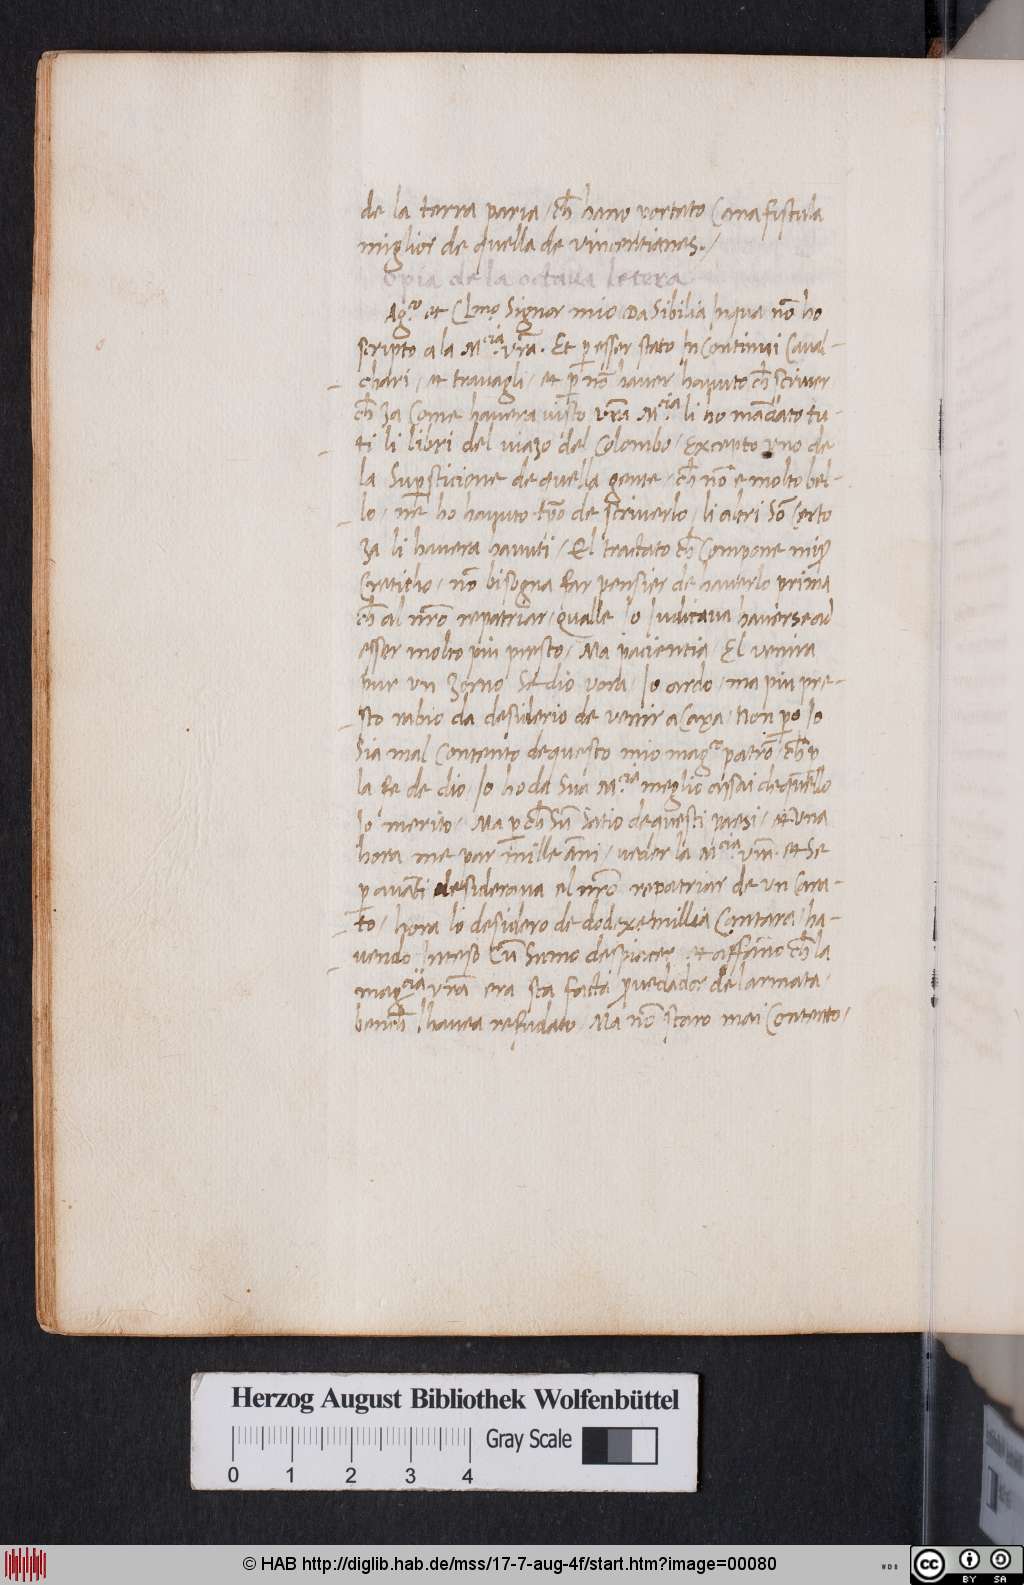 de la terra paria / ch̄ hano portato Canafistula
miglior de quella de vincentianes./
Copia de la octava letera
Ag.co et Cl.mo Signor mio Da Sibilia Inqua nō ho
scripto a la M.cia vrā. Et p̱ esser stato In Continui Caval-
chari / et travagli / et p̱ nō haver havuto ch̄ scriver
ch̄ za Come havera visto vrā M.cia li ho mādato tu-
ti li libri del viazo del Colombo / Excepto uno de
la Supersticione de quella gente / ch̄ nō e molto bel-
lo / nē ho havuto tp̄o de scriverlo / li altri Sō Certo
za li havera havuti / El tractato ch̄ Compone miss̄
Creticho / nō bisogna far pensier de haverlo prima
ch̄ al nr̄o repatriar / qualle Io Iudicava haverse ad
esser molto piu presto / Ma paciencia / El venira
pur un zorno Se dio vora / Io ardo / ma piu pre-
sto rabio da desiderio de venir a Caxa / Non p̱o Io
Sia mal Contento de questo mio mag.co patrō / ch̄ p̱
la fe de dio Io ho da Sua M.cia meglio assai de quello
Io merito / Ma p̱ch̄ Sū Satio de questi paesi / et una
hora me par mille āni / veder la M.cia vrā. et Se
p̱ avāti desiderava el nr̄o repatriar de un Cara-
to / hora lo desidero de dodexe millia Cantara / ha-
vendo Inteso Cū Sumo despiacer et affāno ch̄ la
mag.cia vrā era sta facta p̱vedador de larmata /
bench̄ lhavea refudato / Ma nō staro mai Contento /
Herzog August Bibliothek Wolfenbüttel
Gray Scale
0 1 2 3 4
© HAB http://diglib.hab.de/mss/17-7-aug-4f/start.htm?image=00080
WDB
cc BY SA